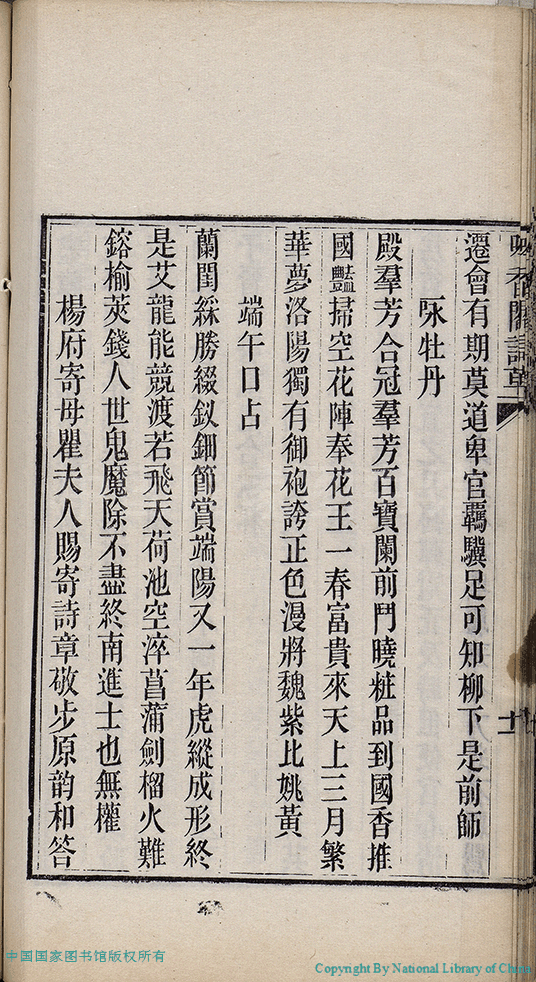 遷會有期莫道卑官羈驥足可知柳下是前師
咏牡丹
殿羣芳合冠羣芳百寶闌前鬥曉粧品到國香推
國豔掃空花陣奉花王一春富貴來天上三月繁
華夢洛陽獨有御袍誇正色漫將魏紫比姚黃
端午口占
蘭閨綵勝綴釵鈿節賞端陽又一年虎縱成形終
是艾龍能競渡若飛天荷池空淬菖蒲劍榴火難
鎔榆莢錢人世鬼魔除不盡終南進士也無權
楊府寄母瞿夫人賜寄詩章敬步原韵和答
中国国家图书馆版权所有
Copyright By National Library of China